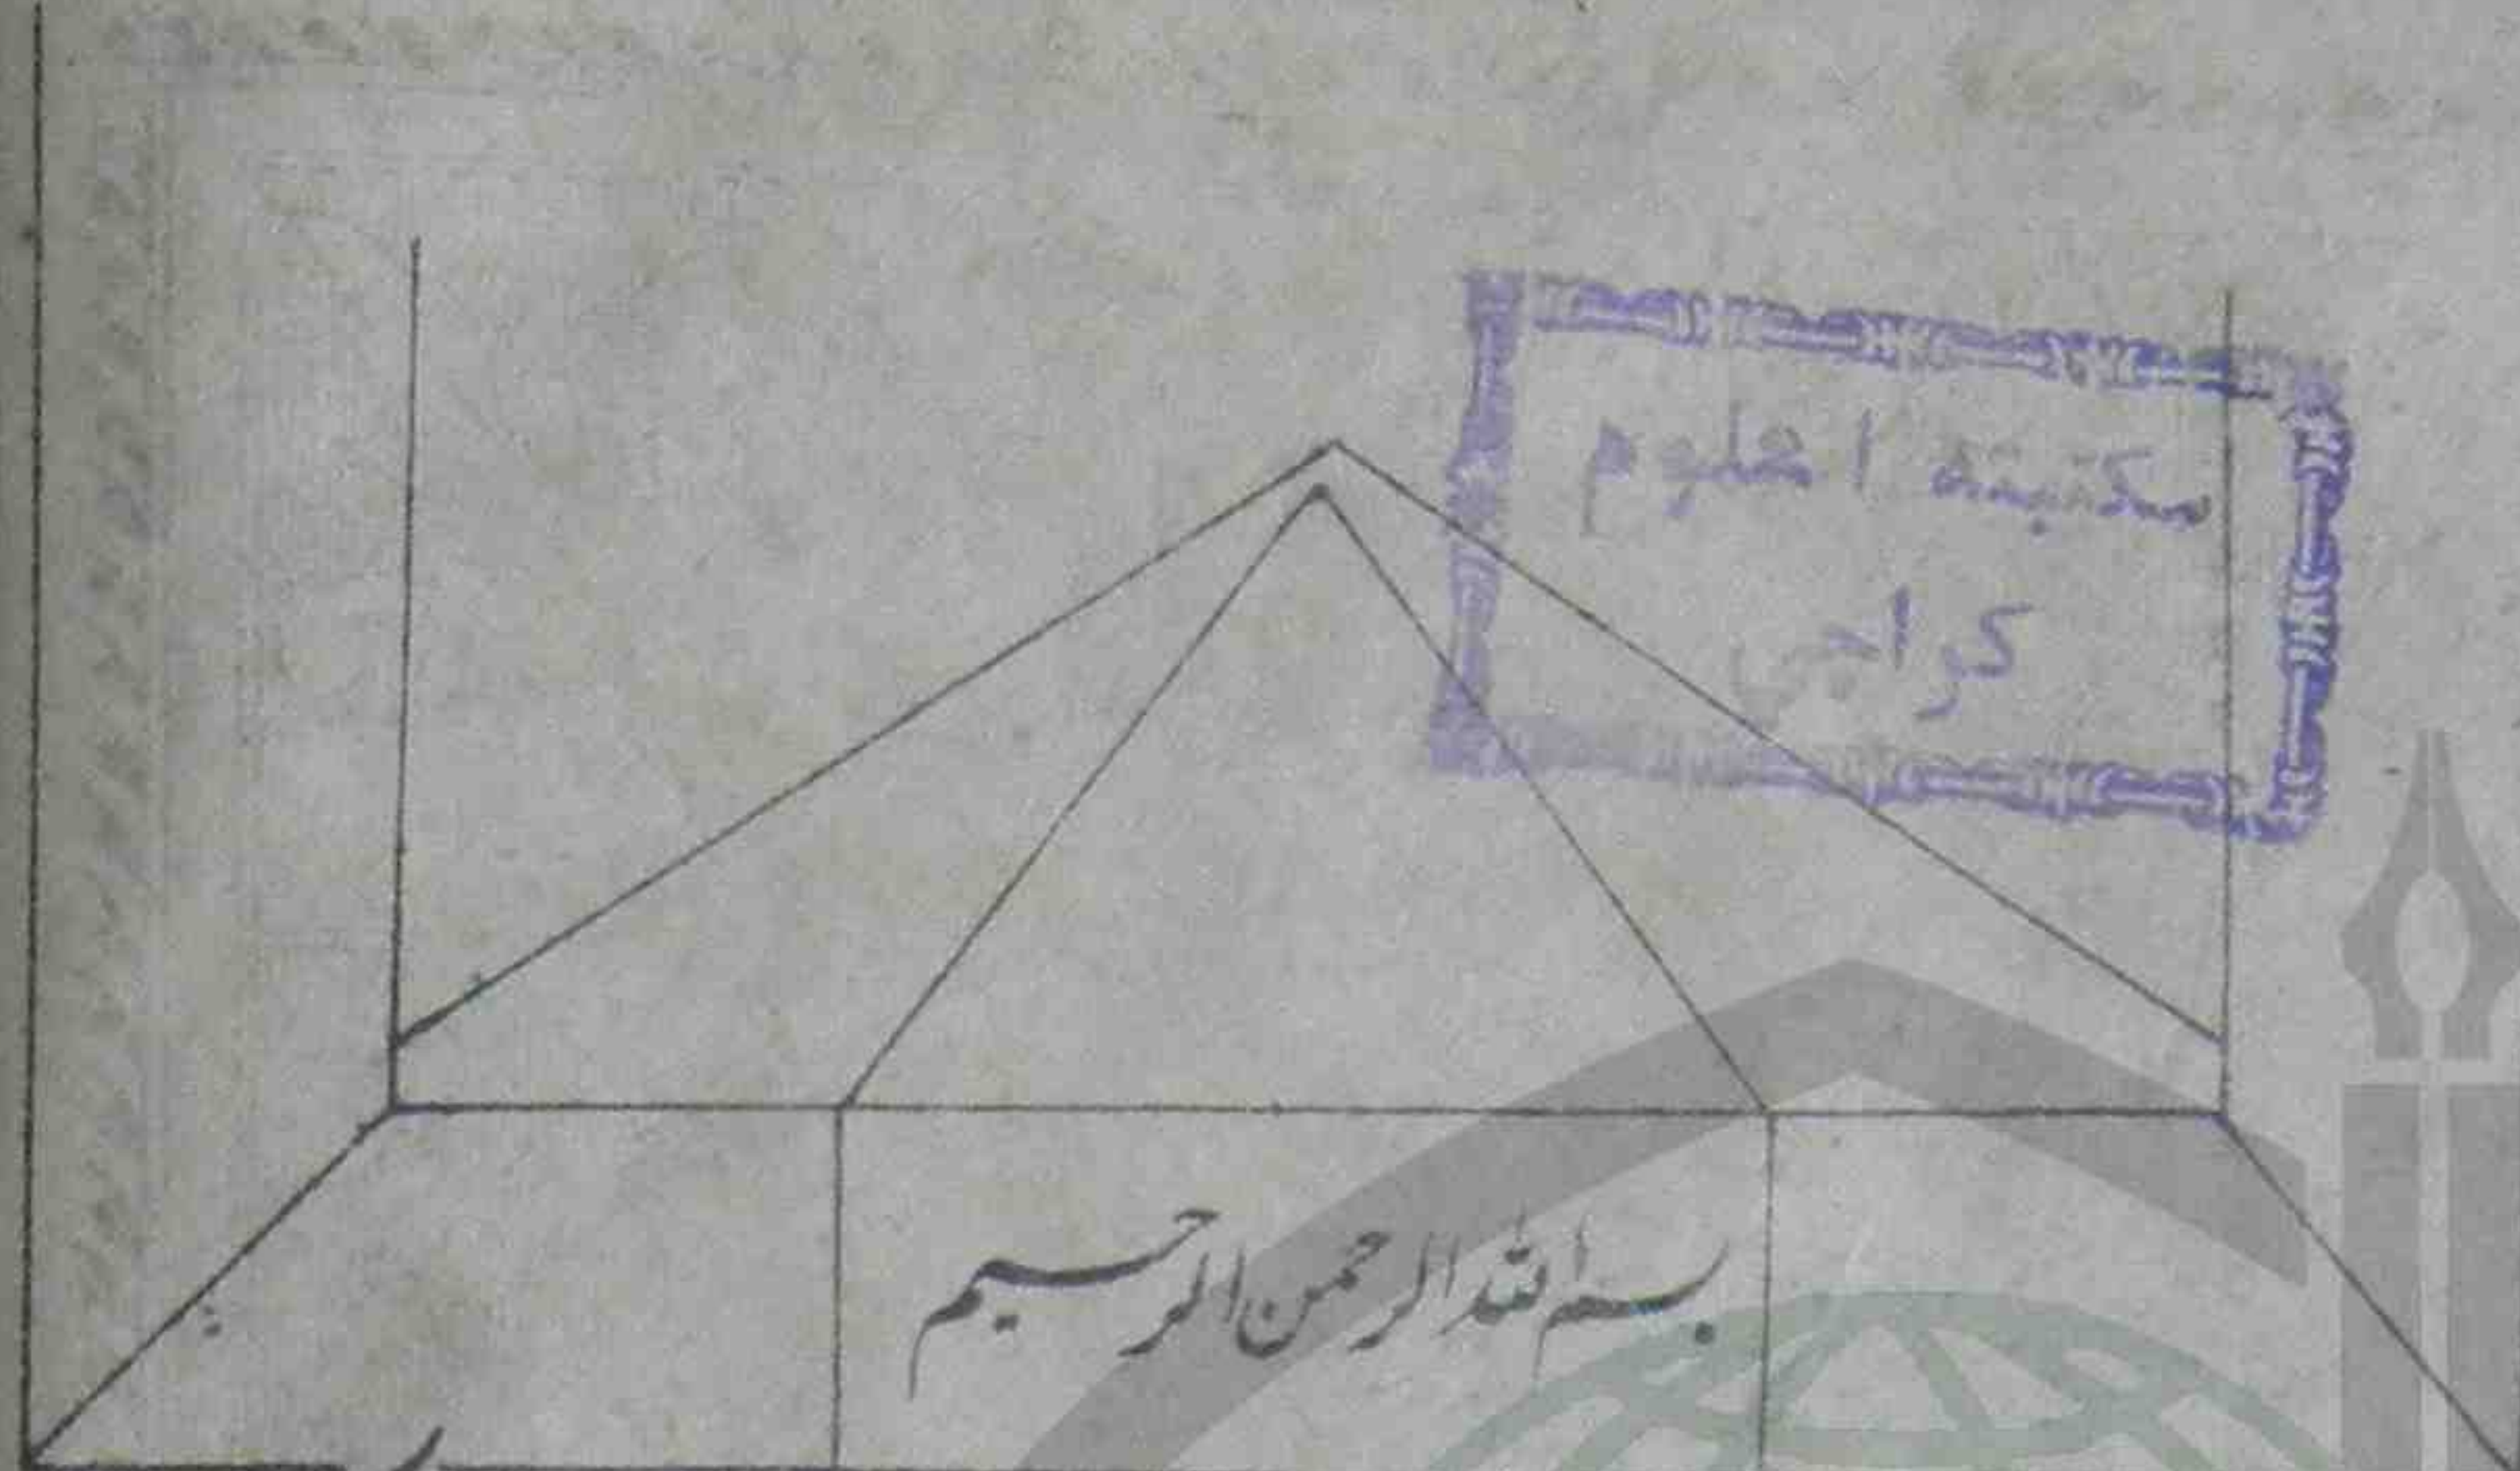 مكتبة العلوم
كراچى
بسم الله الرحمن الرحيم